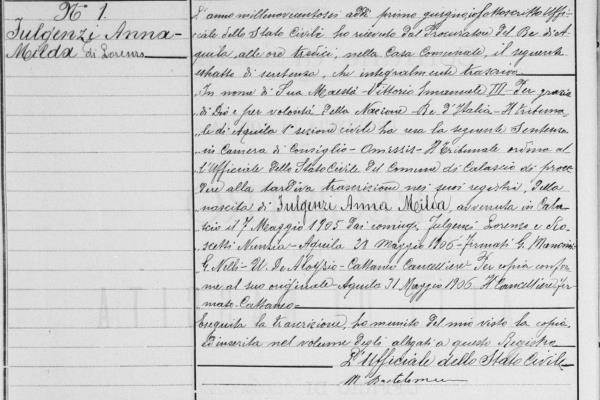 N° 1.
Fulgenzi Anna-
Milda di Lorenzo
L'anno millenovecentosei addì primo giugno io sottoscritto Uffi-
ciale dello Stato Civile ho ricevuto dal Procuratore del Re d'A-
quila, alle ore tredici, nella Casa Comunale, il seguente
estratto di sentenza, che integralmente trascrivo
In nome di Sua Maestà Vittorio Emanuele III - Per grazia
di Dio e per volontà della Nazione - Re d'Italia - Il tribuna-
le di Aquila 1ª sezione civile ha resa la seguente Sentenza
in Camera di Consiglio - Omissis - Il Tribunale ordina al-
l'Ufficiale dello Stato Civile del Comune di Calascio di proce-
dere alla tardiva trascrizione nei suoi registri, della
nascita di Fulgenzi Anna Milda, avvenuta in Cala-
scio il 7 Maggio 1905 dai coniugi Fulgenzi Lorenzo e
Nunzia - Aquila 28 Maggio 1906 - firmati G.
G. - U. De Aloysio - Cattaneo Cancelliere - Per copia confor-
me al suo originale - Aquila 31 Maggio 1906 - Il Cancelliere fir-
mato Cattaneo -
Eseguita la trascrizione, ho munito del mio visto la copia,
ed inserita nel volume degli allegati a questo Registro
L'Ufficiale dello Stato Civile